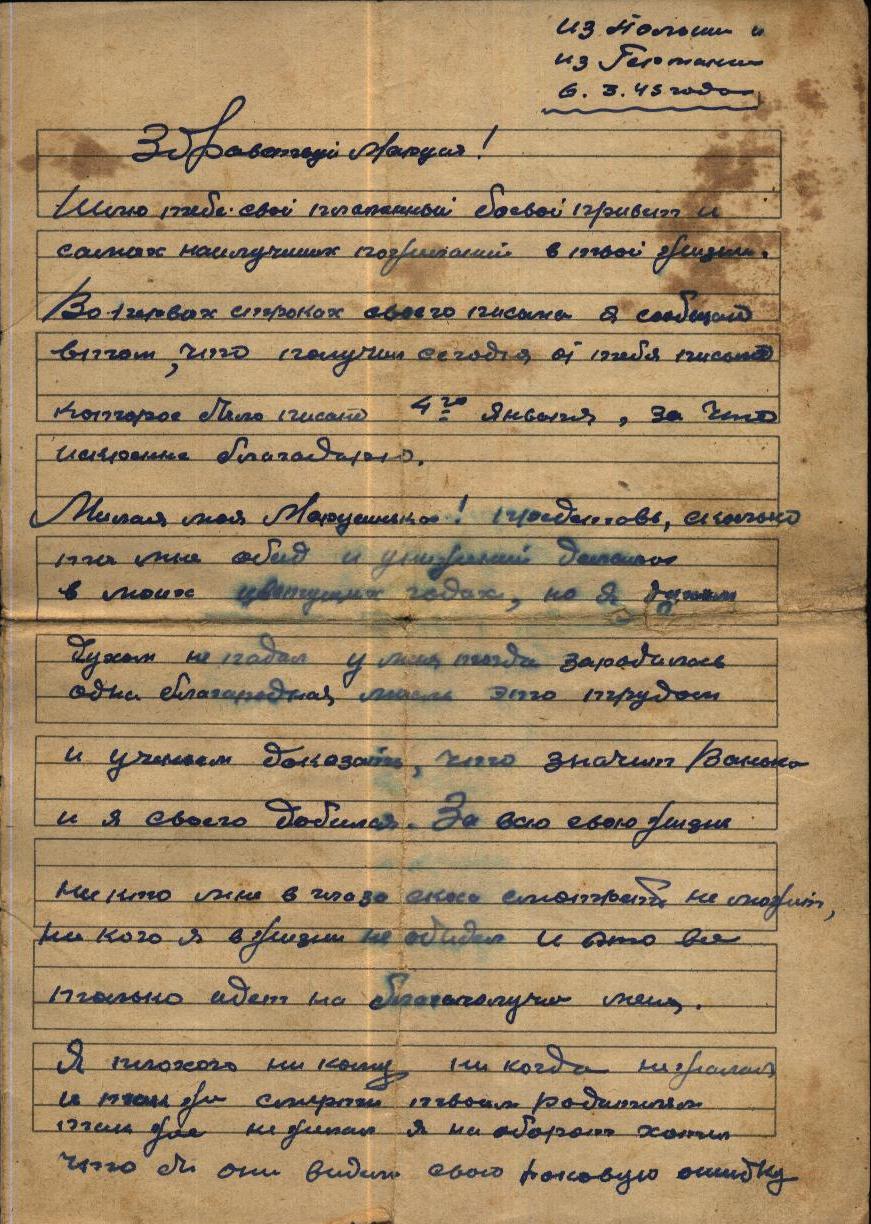 из Польши и
из Германии
6. 3. 45 года
Здравствуй Маруся!
Шлю тебе свой пламенный боевой привет и
самых наилучших пожеланий в твоей жизни.
Во первых строках своего письма я сообщаю
втом, что получил сегодня от тебя письмо
которое было писано 4го января, за что
искренне благодарю.
Милая моя Марусинька! представь, сколько
ты мне обид и унижений
в моих цветущих годах, но я
духом не падал у меня тогда зародилась
одна благародная мысль это трудом
и ученьем доказать, что значит Ванька
и я своего добился. За всю свою жизнь
ни кто мне в глаза скоса смотреть не может,
ни кого я в жизни не обидел и это все
только идет на благополучие меня.
Я плохого ни кому ни когда не желал
и так же смерти твоим родителям
так же не желал я на оборот хотел
что бы они видели свою роковую ошибку